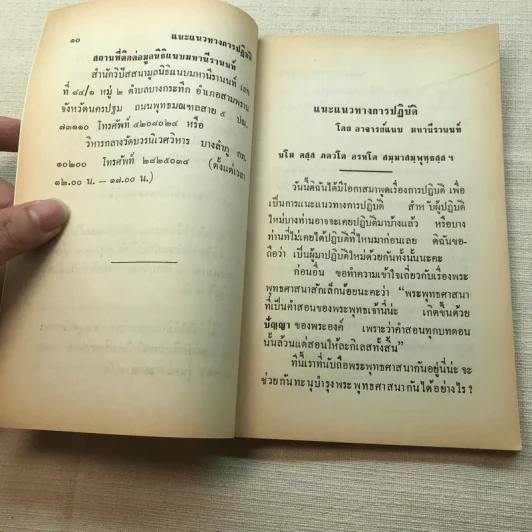 ๑๐
แนะแนวทางการปฏิบัติ
สถานที่ติดต่อมูลนิธิแนบมหานีรานนท์
สำนักวิปัสสนามูลนิธิแนบมหานีรานนท์ เลข
ที่ ๘๔/๑ หมู่ ๒ ตำบลบางกระทึก อำเภอสามพราน
จังหวัดนครปฐม ถนนพุทธมณฑลสาย ๕ ปณ.
๗๓๑๑๐ โทรศัพท์ ๔๒๐๘๐๒๔ หรือ
วิหารกลางวัดบวรนิเวศวิหาร บางลำภู กท.
๑๐๒๐๐ โทรศัพท์ ๒๘๒๕๐๓๔ (ตั้งแต่เวลา
๑๒.๐๐ น. - ๑๗.๐๐ น.)
แนะแนวทางการปฏิบัติ
โดย อาจารย์แนบ มหานีรานนท์
นโม ตสฺส ภควโต อรหโต สมฺมาสมฺพุทฺธสฺส ฯ
วันนี้ดิฉันได้มีโอกาสมาพูดเรื่องการปฏิบัติ เพื่อ
เป็นการแนะแนวทางการปฏิบัติ สำหรับผู้ปฏิบัติ
ใหม่บางท่านอาจจะเคยปฏิบัติมาบ้างแล้ว หรือบาง
ท่านที่ไม่เคยได้ปฏิบัติที่ไหนมาก่อนเลย ดิฉันขอ-
ถือว่า เป็นผู้มาปฏิบัติใหม่ด้วยกันทั้งนั้นนะคะ
ก่อนอื่น ขอทำความเข้าใจเกี่ยวกับเรื่องพระ
พุทธศาสนาสักเล็กน้อยนะคะว่า "พระพุทธศาสนา
ที่เป็นคำสอนของพระพุทธเจ้านี่น่ะ เกิดขึ้นด้วย
ปัญญา ของพระองค์ เพราะว่าคำสอนทุกบททุกตอน
นั้นล้วนแต่สอนให้ละกิเลสทั้งสิ้น"
ทีนี้เราที่นับถือพระพุทธศาสนากันอยู่นี่น่ะ จะ
ช่วยกันทะนุบำรุงพระพุทธศาสนากันได้อย่างไร ?